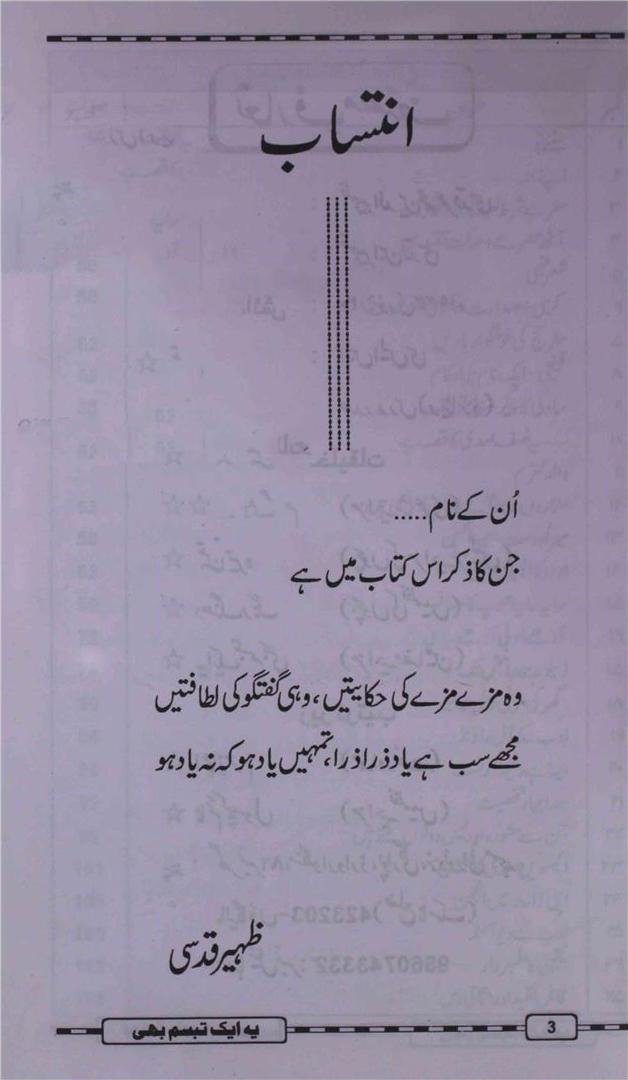 انتساب
اُن کے نام .....
جن کا ذکر اس کتاب میں ہے
وہ مزے مزے کی حکایتیں، وہی گفتگو کی لطافتیں
مجھے سب ہے یاد ذرا ذرا، تمہیں یاد ہو کہ نہ یاد ہو
ظہیر قدسی
یہ ایک تبسم بھی
3